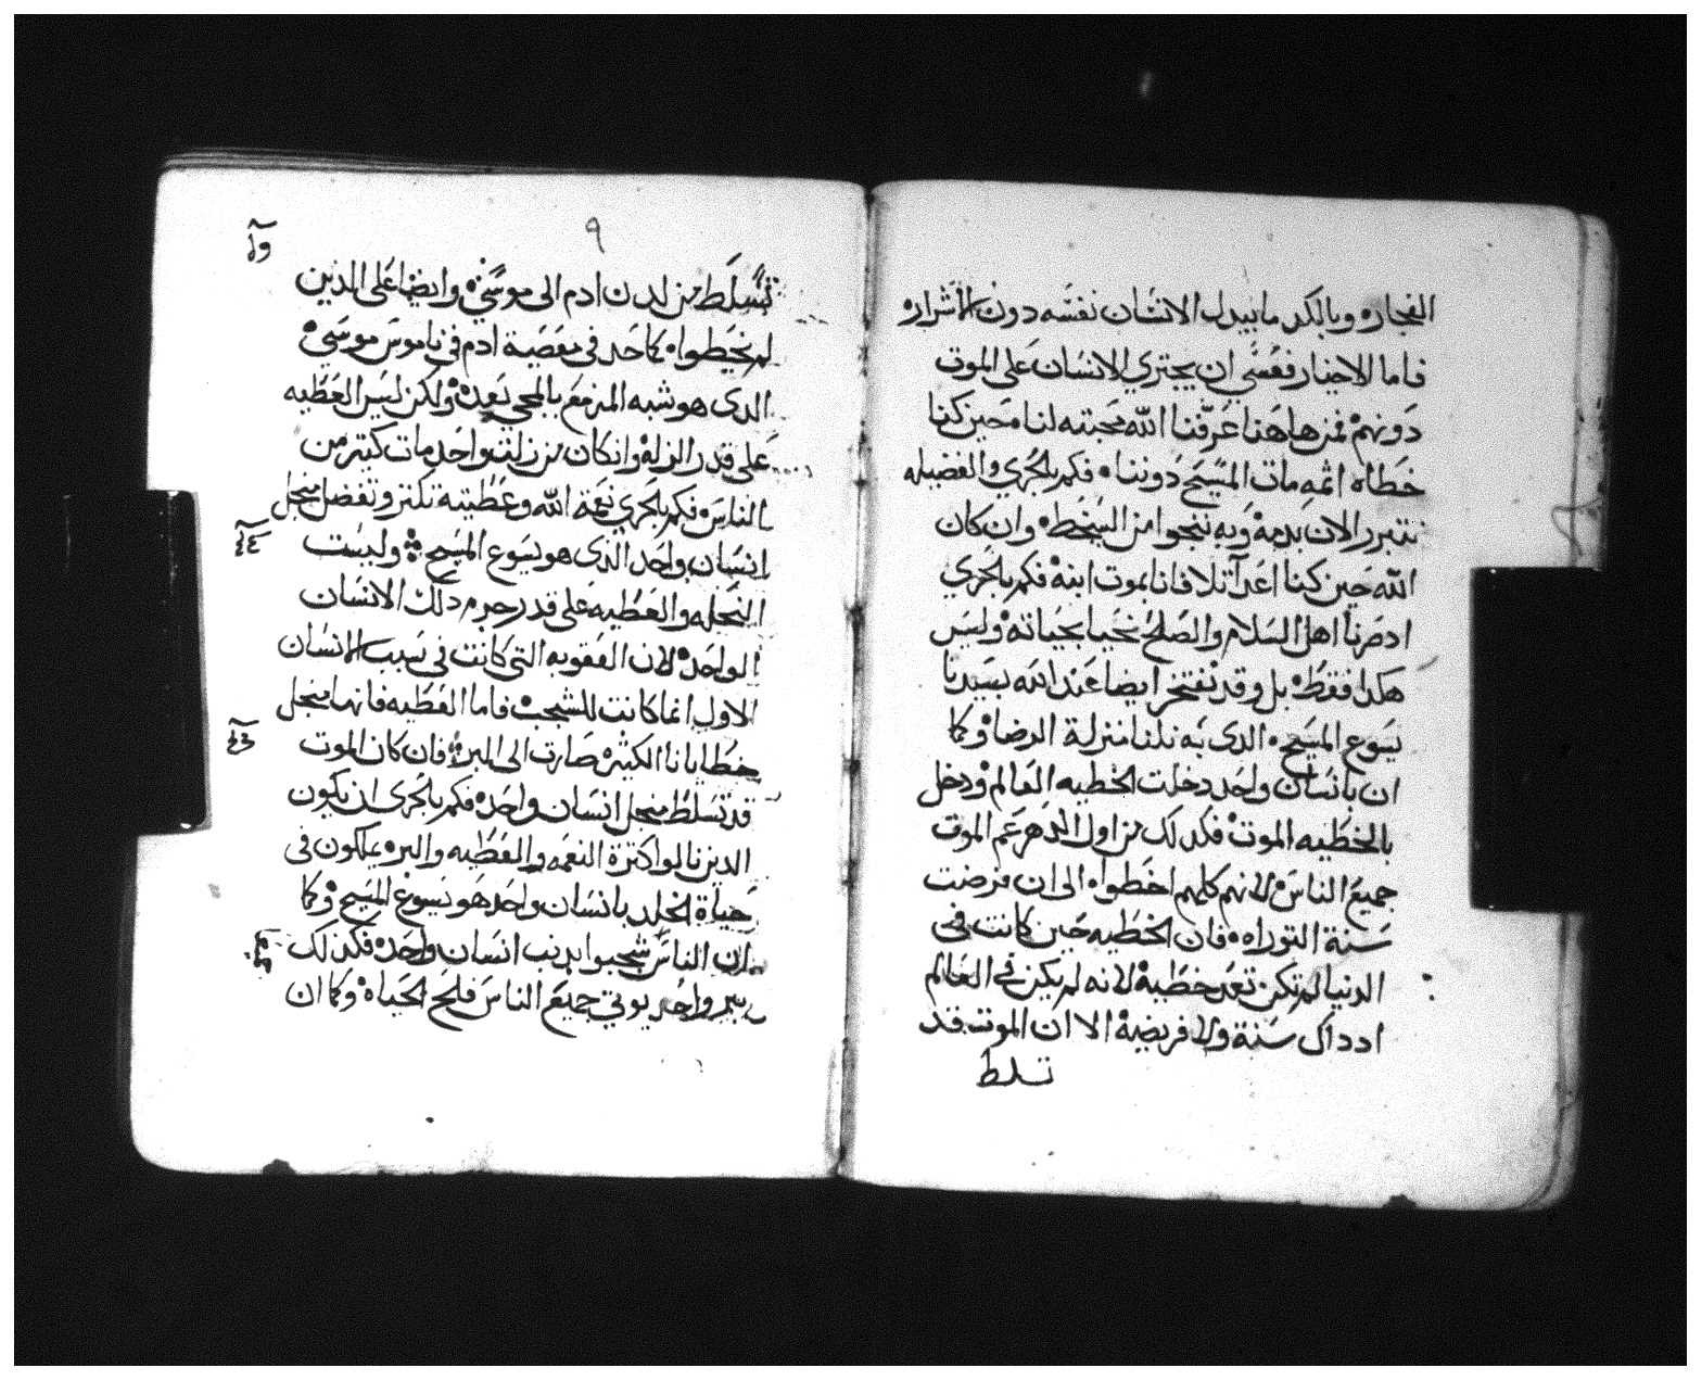 الفجاره وبالكد ما يبدل الانسان نفسه دون الاشرار
فاما الاخيار فعسي ان يجتري الانسان على الموت
دونهم فمن هاهنا عرفنا الله محبته لنا محين كنا
خطاه اثمه مات المسيح دوننا فكم بالحري والفضيله
نتبرر الان بدمه وبه ننجوا من السخط وان كان
الله حين كنا اعدا تلافانا بموت ابنه فكم بالحري
اد صرنا اهل السلام والصلح نحيا بحياته وليس
هكدا فقط بل وقد نفتخر ايضا عند الله بسيدنا
يسوع المسيح الدى به نلنا منزلة الرضا وكما
ان بانسان واحد دخلت الخطيه العالم ودخل
بالخطيه الموت فكدلك من اول الدهر عم الموت
جميع الناس لانهم كلهم اخطوا الى ان فرضت
سنة التوراه فان الخطيه حين كانت في
الدنيا لم تكن تعد خطية لانه لم يكن في العالم
ادداك سنة ولا فريضة الا ان الموت قد
تسلط
٩
تسلط من لدن ادم الى موسي وايضا على الدين
لم يخطوا كاحد في معصية ادم في ناموس موسي
الدى هو شبه المزمع بالمجي بعده ولكن ليس العطيه
على قدر الزله وان كان من زلت واحد مات كتير من
الناس فكم بالحري نعمة الله وعطيته تكتر وتفضل منجل
انسان واحد الذى هو يسوع المسيح وليست
النحله والعطيه على قدر جرم دلك الانسان
الواحد لان العقوبه التى كانت في سبب الانسان
الاول انما كانت للشجب فاما العطيه فانها منجل
خطايانا الكثيره صارت الى البر فان كان الموت
قد تسلط منجل انسان واحد فكم بالحرى ان يكون
الدين نالوا كترة النعمه والعطيه والبر يملكون في
حياة الخلد بانسان واحد هو يسوع المسيح وكما
ان الناس شجبوا بدنب انسان واحد فكذلك
ببر واحد يوتي جميع الناس فلج الحياة وكما ان